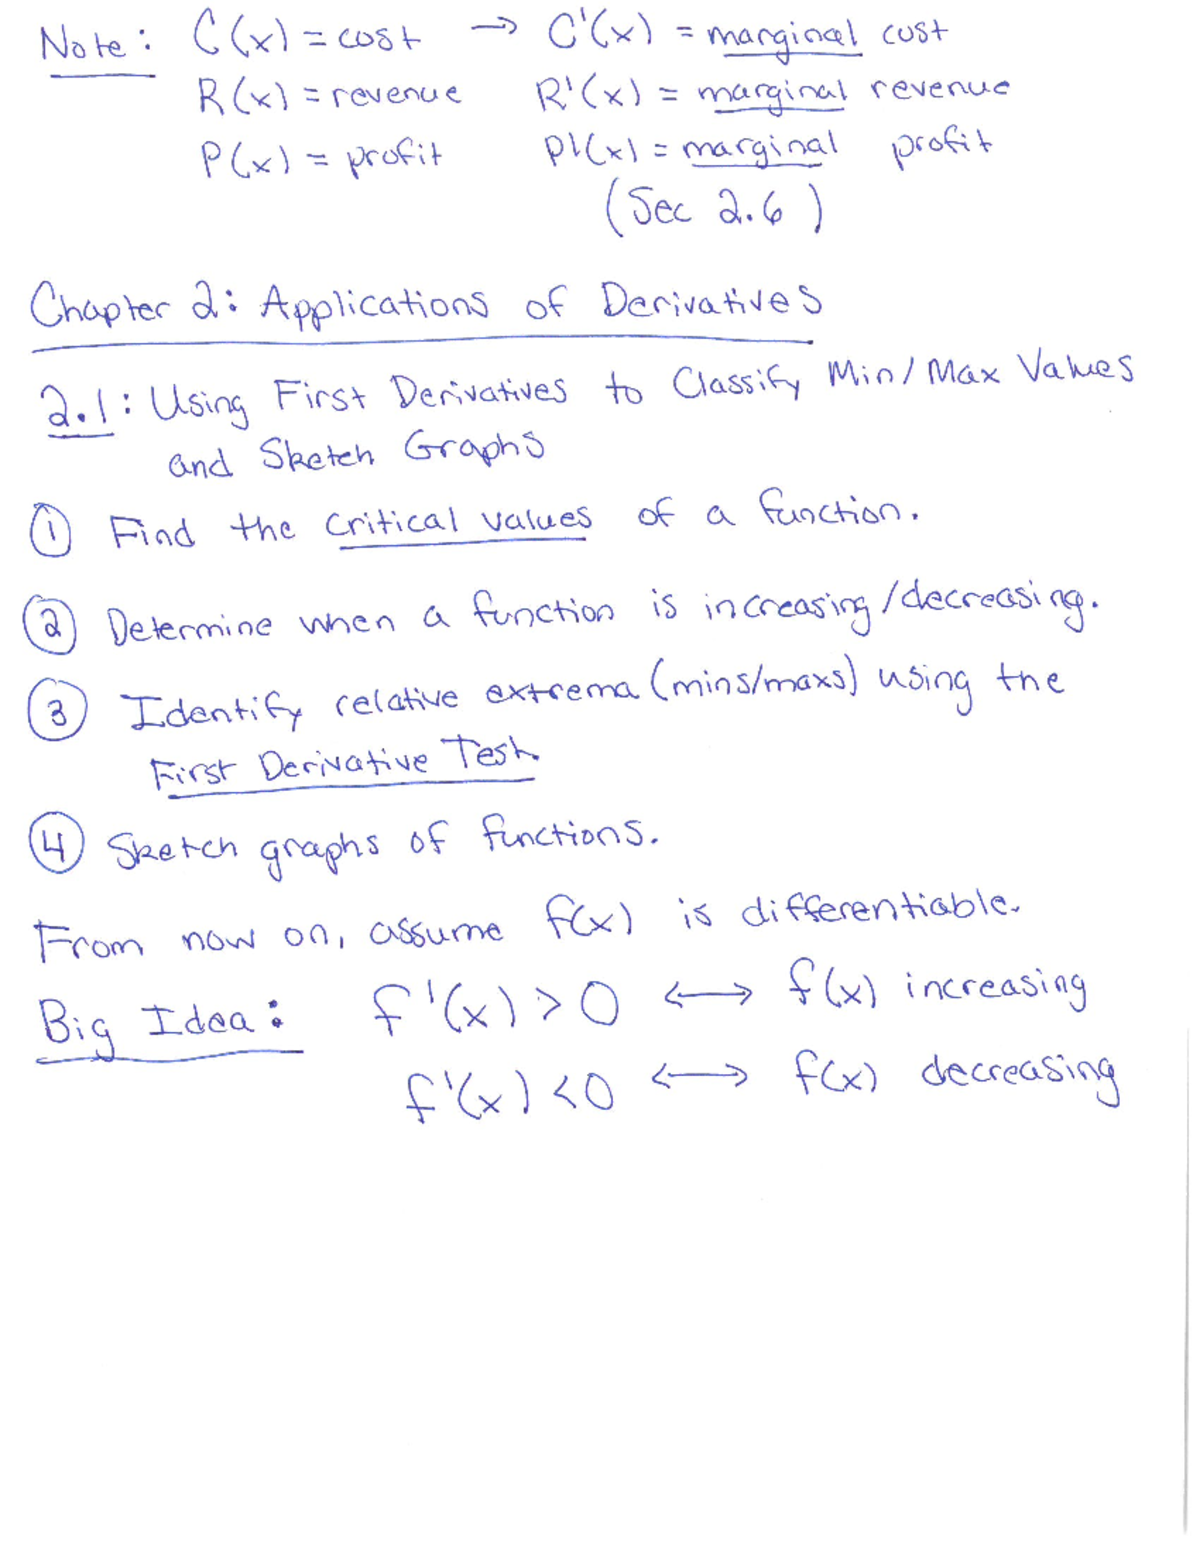 Note: C(x) = cost → C'(x) = marginal cost
R(x) = revenue R'(x) = marginal revenue
P(x) = profit P'(x) = marginal profit
(Sec 2.6)
Chapter 2: Applications of Derivatives
2.1: Using First Derivatives to Classify Min/Max Values
and Sketch Graphs
① Find the critical values of a function.
② Determine when a function is increasing/decreasing.
③ Identify relative extrema (mins/maxs) using the
First Derivative Test.
④ Sketch graphs of functions.
From now on, assume f(x) is differentiable.
Big Idea: f'(x) > 0 ↔ f(x) increasing
f'(x) < 0 ↔ f(x) decreasing